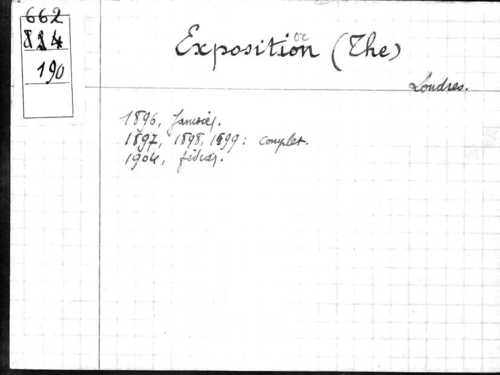 662
814
190
Exposition (The)
Londres.
1896, Janvier.
1897, 1898, 1899: complet.
1904, février.